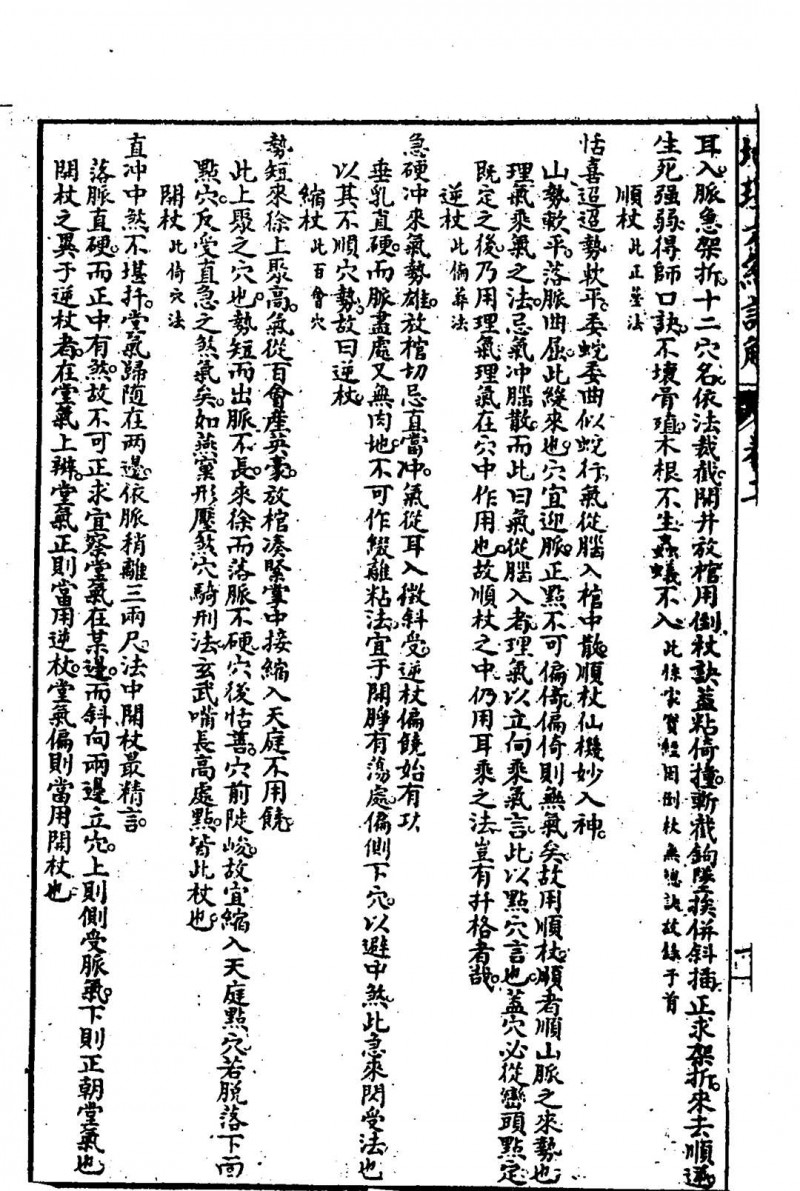 耳入脈急架折十二穴名依法裁截開井放棺用倒杖訣蓋粘倚撞斬截鉤墜挨併斜插正求架折來去順逆
生死强弱得師口訣不壞骨殖木根不生蟲蟻不入此徐家寶經用倒杖無總訣故錄于首
順杖此正葬法
恬喜迢迢勢軟平委蛇委曲似蛇行氣從腦入棺中散順杖仙機妙入神
山勢軟平落脈曲屈此緩來也穴宜迎脈正點不可偏倚偏倚則無氣矣故用順杖順者順山脈之來勢也
理氣乘氣之法忌氣冲腦散而此曰氣從腦入者理氣以立向乘氣言此以點穴言也蓋穴必從巒頭點定
既定之後乃用理氣理氣在穴中作用也故順杖之中仍用耳乘之法豈有扞格者哉
逆杖此偏葬法
急硬冲來氣勢雄放棺切忌直當冲氣從耳入微斜受逆杖偏饒始有功
垂乳直硬而脈盡處又無肉地不可作綴離粘法宜于開睜有蕩處偏側下穴以避中煞此急來閃受法也
以其不順穴勢故曰逆杖
縮杖此百會穴
勢短來徐上聚高氣從百會產英豪放棺湊緊掌中接縮入天庭不用饒
此上聚之穴也勢短而出脈不長來徐而落脈不硬穴後恬善穴前陡峻故宜縮入天庭點穴若脫落下面
點穴反受直急之煞氣矣如燕窠形壓煞穴騎刑法玄武嘴長高處點皆此杖也
開杖此倚穴法
直冲中煞不堪扦堂氣歸隨在兩邊依脈稍離三兩尺法中開杖最精言
落脈直硬而正中有煞故不可正求宜察堂氣在某邊而斜向兩邊立穴上則側受脈氣下則正朝堂氣也
開杖之異于逆杖者在堂氣上辨堂氣正則當用逆杖堂氣偏則當用開杖也